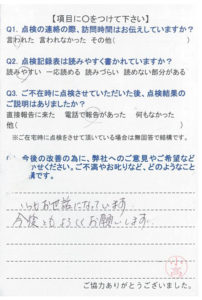 【項目に○をつけて下さい】
Q1. 点検の連絡の際、訪問時間はお伝えしていますか?
言われた 言われなかった その他( )
Q2. 点検記録表は読みやすく書かれていますか?
読みやすい 一応読める 読みづらい 読めない部分がある
Q3. ご不在時に点検させていただいた後、点検結果の
ご説明はありましたか?
直接報告に来た 電話で報告があった 何もなかった
他( )
※ご在宅時に点検をさせて頂いている場合は無回答で結構です。
今後の改善の為に、弊社へのご意見やご希望など
せください。ご不満やお叱りなど、どのようなこと
構です。
いつもお世話になっています。
今後ともよろしくお願いします。
小高
ご協力ありがとうございました。